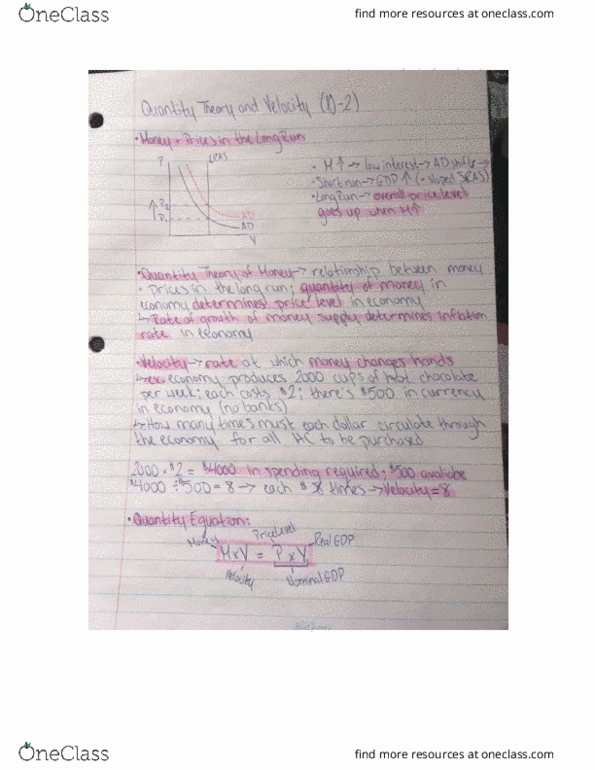 OneClass
find more resources at oneclass.com
Quantity Theory and Velocity (D-2)
• Money + Prices in the Long Run
P
LRAS
• M↑ → low interest → AD shifts →
• Short run → GDP ↑ (+ sloped SRAS)
• Long Run → overall price level
goes up when M↑
↑ P₂
P₁
AD
Y
• Quantity Theory of Money → relationship between money
+ prices in the long run; quantity of money in
economy determines price level in economy
↳ Rate of growth of money supply determines inflation
rate in economy
• Velocity → rate at which money changes hands
↳ ex. economy produces 2000 cups of hot chocolate
per week; each costs $2; there's $500 in currency
in economy (no banks)
↳ How many times must each dollar circulate through
the economy for all HC to be purchased
2000 × $2 = $4000 in spending required; $500 avaliable
$4000 ÷ $500 = 8 → each $ 8 times → Velocity = 8
• Quantity Equation:
Price level
Money
Real GDP
M×V = P×Y
Velocity
Nominal GDP
OneClass
find more resources at oneclass.com